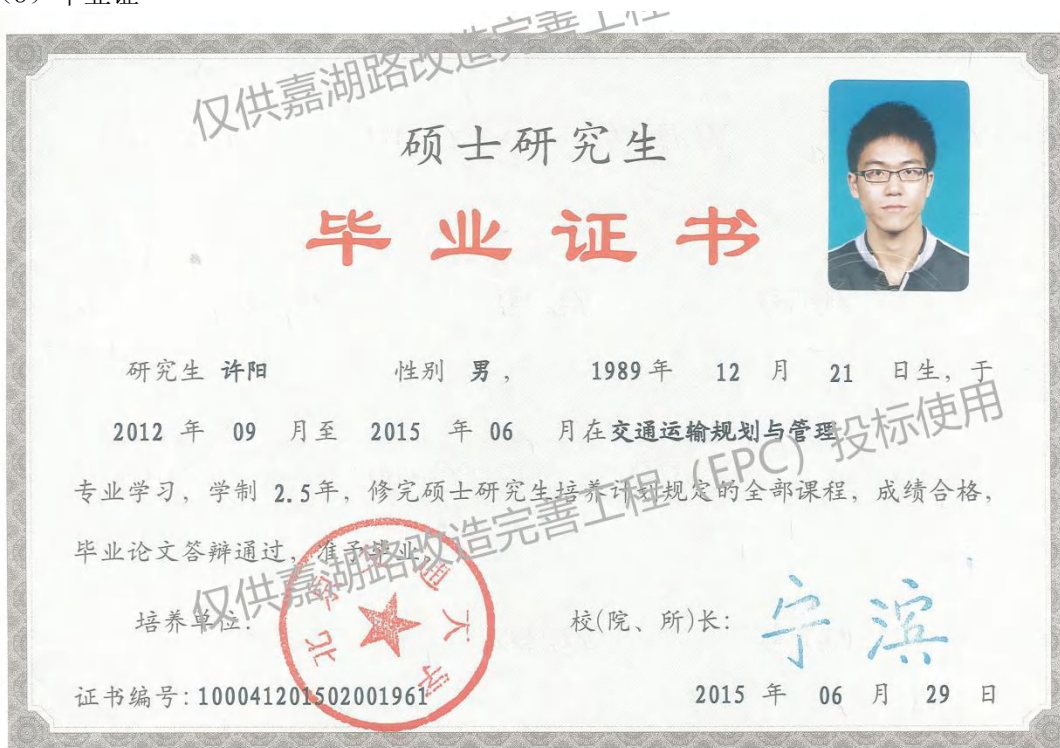 毕业证
仅供嘉湖路改造完善工程
硕士研究生
毕业证书
研究生 许阳 性别 男, 1989年 12 月 21 日生, 于
2012 年 09 月至 2015 年 06 月在交通运输规划与管理
专业学习, 学制 2.5年, 修完硕士研究生培养计划规定的全部课程, 成绩合格,
毕业论文答辩通过, 准予毕业。
仅供嘉湖路改造完善工程（EPC）投标使用
北京交通大学
培养单位: 校(院、所)长: 宁滨
证书编号: 100041201502001961 2015 年 06 月 29 日